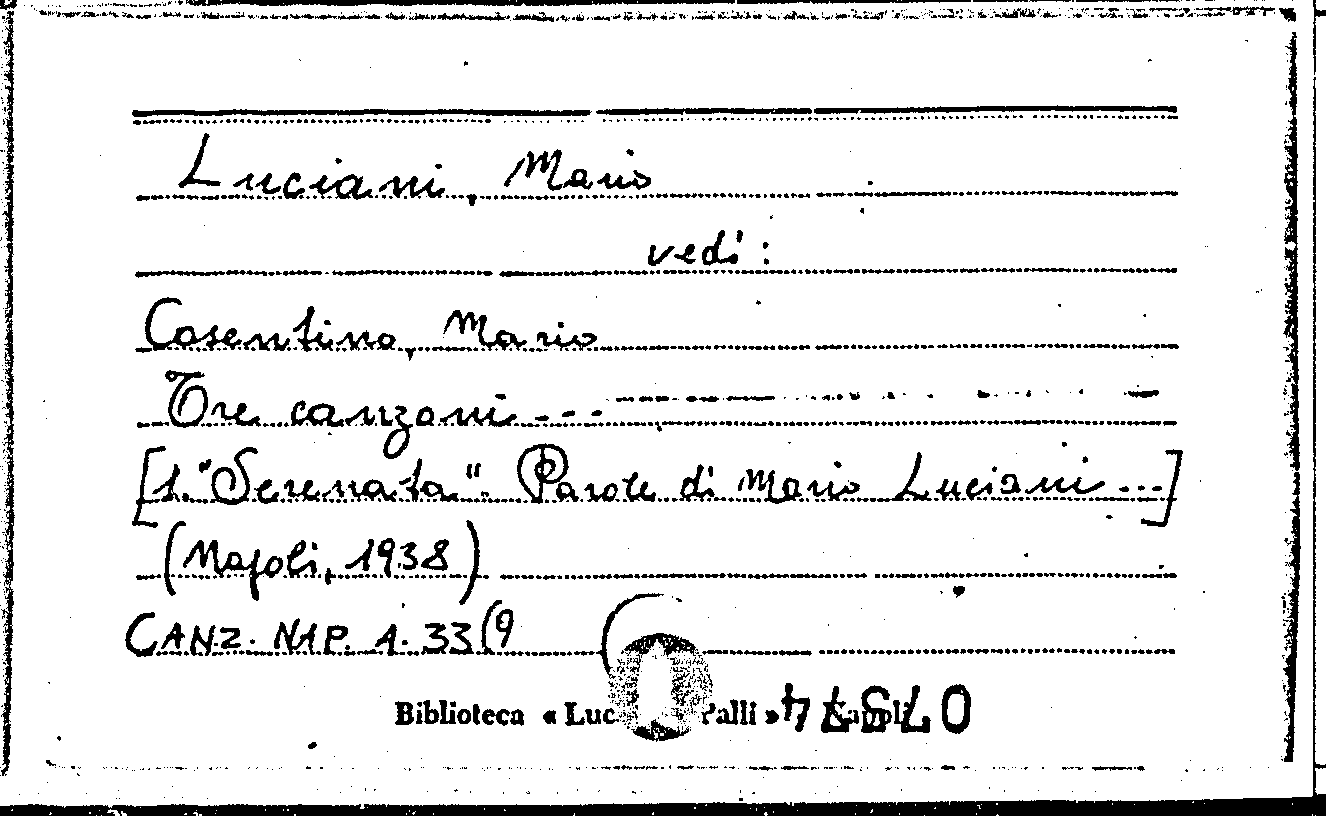 Luciani, Mario
vedi:
Cosentino, Mario
Tre canzoni ---
[1. "Serenata". Parole di Mario Luciani ...]
(Napoli, 1938)
CANZ. NAP. A. 33(9
Biblioteca « Luc Palli » Napoli